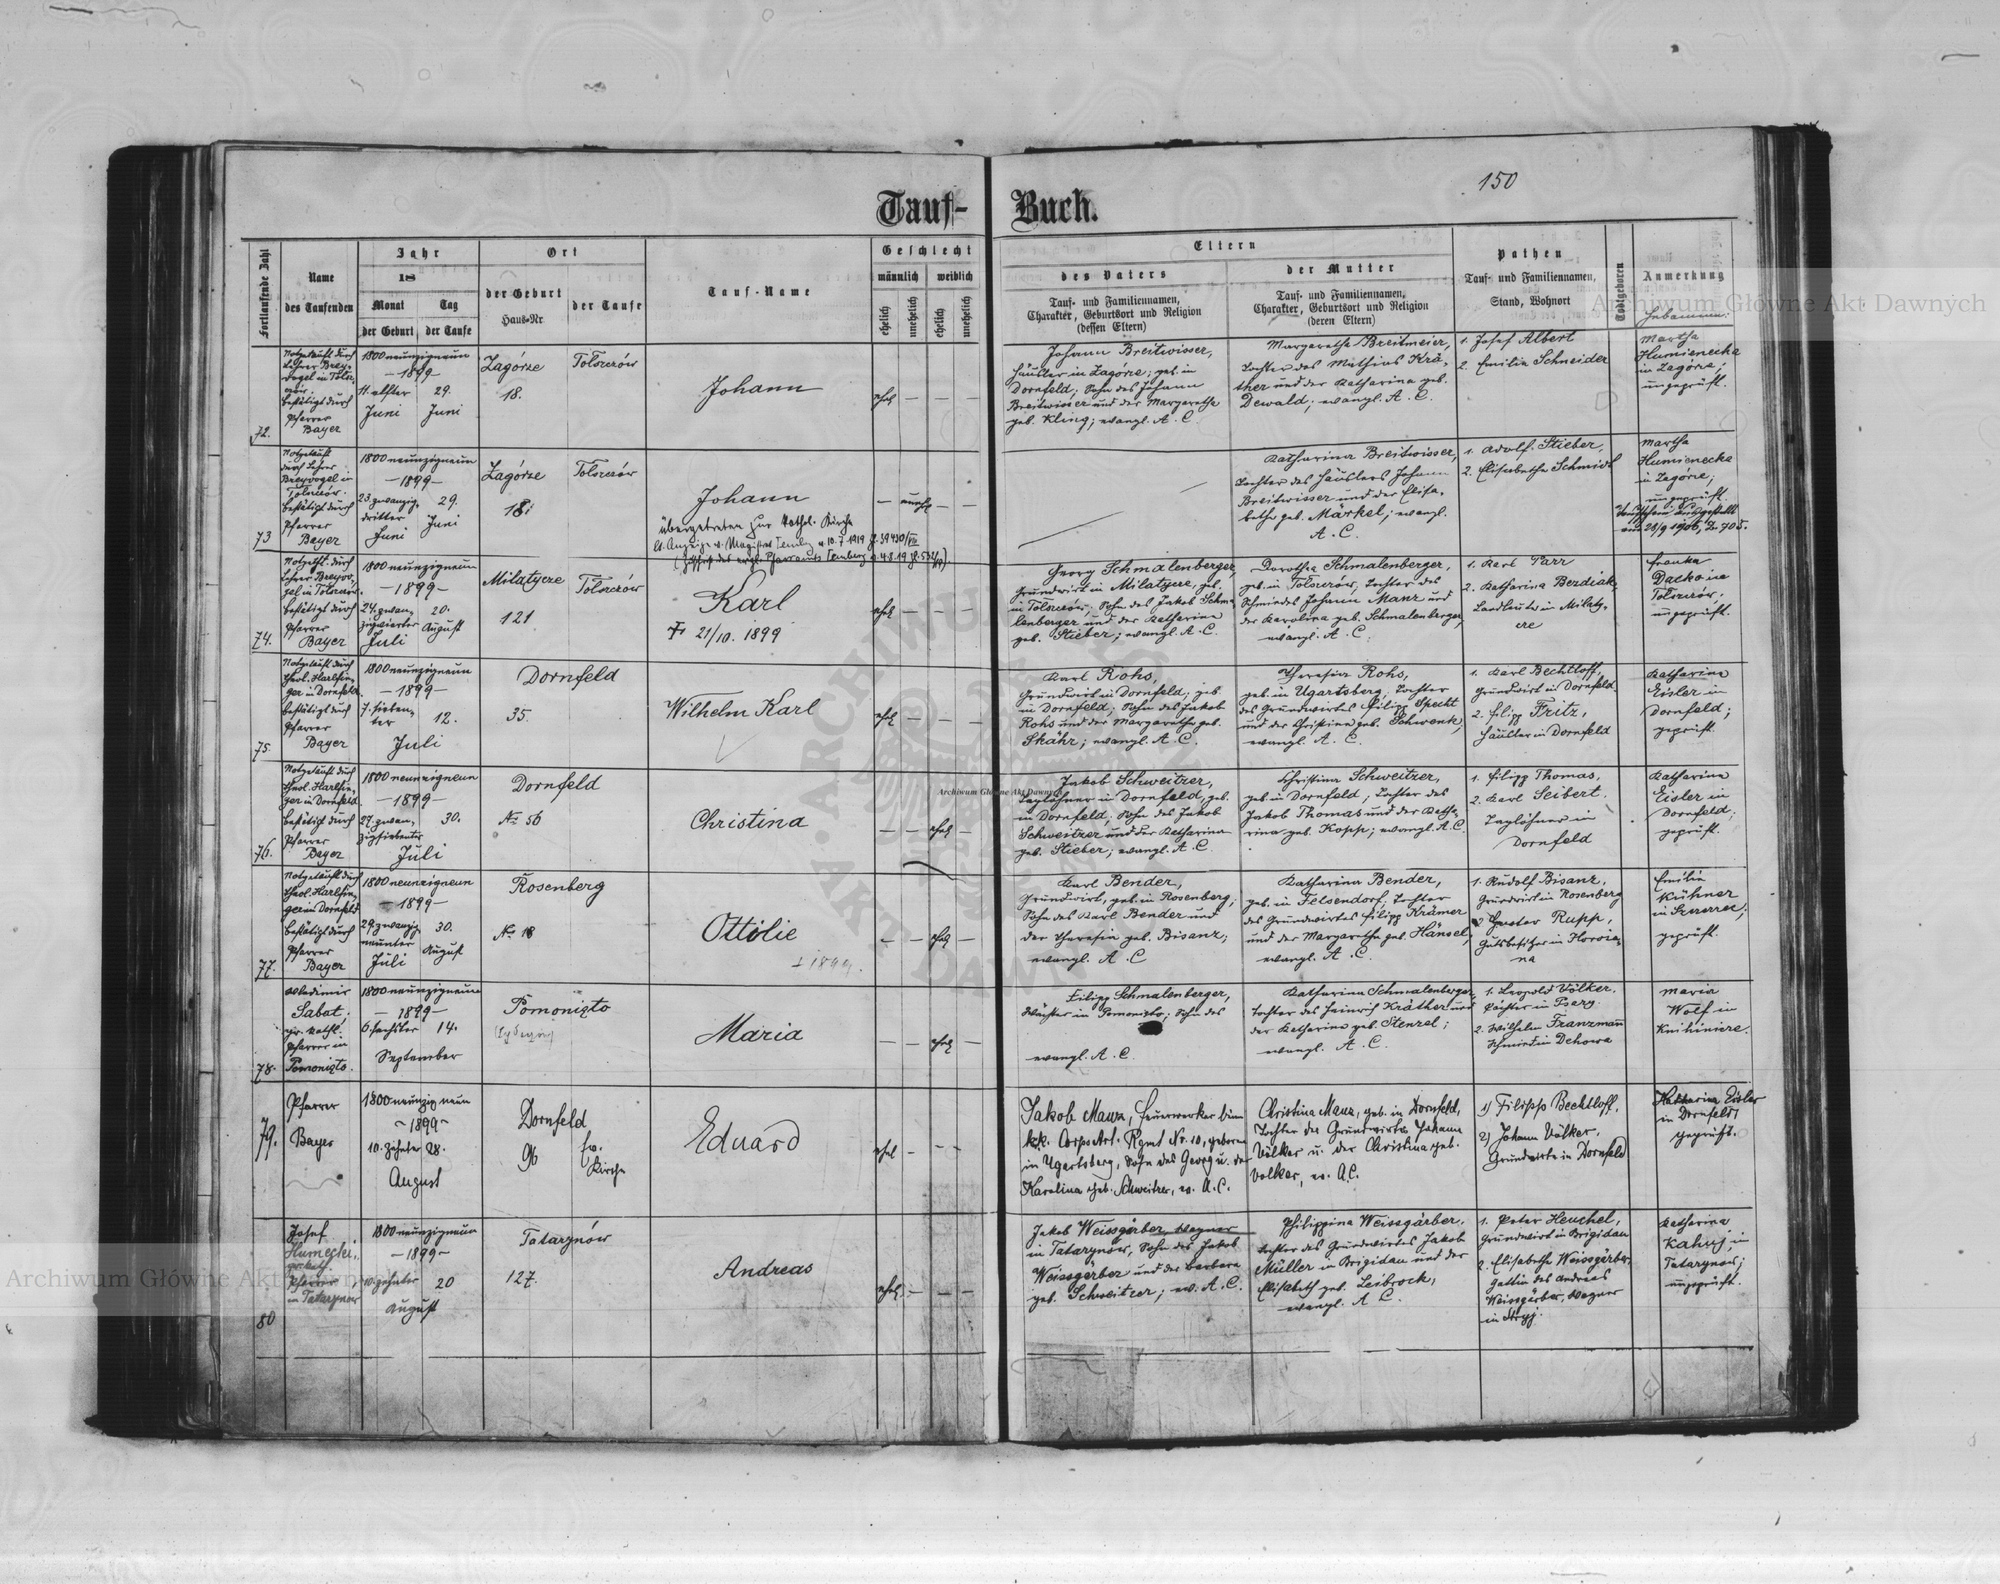 150
Tauf-Buch.
Fortlaufende Zahl
Name
des Taufenden
Jahr
18
Monat
Tag
der Geburt
der Taufe
Ort
der Geburt
Haus-Nr.
der Taufe
Tauf-Name
Geschlecht
männlich
weiblich
ehelich
unehelich
ehelich
unehelich
Eltern
des Vaters
Tauf- und Familiennamen,
Charakter, Geburtsort und Religion
(dessen Eltern)
der Mutter
Tauf- und Familiennamen,
Charakter, Geburtsort und Religion
(deren Eltern)
Pathen
Tauf- und Familiennamen,
Stand, Wohnort
Todtgeboren
Anmerkung
Hebammen:
72.
Notgetauft durch
Lehrer Brey-
vogel in Tolsz-
czów.
bestätigt durch
Pfarrer
Bayer
1800 neunzigneun
—1899—
11. elfter
Juni
29.
Juni
Zagórze
18.
Tolszczów
Johann
ehel — — —
Johann Breitwisser,
Häusler in Zagórze; geb. in
Dornfeld, Sohn des Johann
Breitwisser und der Margarethe
geb. Kling; evangl. A. C.
Margaretha Breitmeier,
Tochter des Mathias Krä-
ther und der Katharina geb.
Dewald; evangl. A. C.
1. Josef Albert
2. Emilie Schneider
Martha
Humienecka
in Zagórze;
ungeprüft.
73
Notgetauft
durch Lehrer
Breyvogel in
Tolszczów.
bestätigt durch
Pfarrer
Bayer
1800 neunzigneun
—1899—
23. zwanzig-
dritter
Juni
29.
Juni
Zagórze
18.
Tolszczów
Johann
übergetreten zur kathol. Kirche
— unehel — —
Katharina Breitwisser,
Tochter des Häuslers Johann
Breitwisser und der Elisa-
betha geb. Märkel; evangl.
A. C.
1. Adolf Stieber,
2. Elisabetha Schmidt
Martha
Humienecka
in Zagórze;
ungeprüft.
74.
Notgeth. durch
Lehrer Breyvo-
gel in Tolszczów.
bestätigt durch
Pfarrer
Bayer
1800 neunzigneun
—1899—
24. zwan-
zigvierter
Juli
20.
August
Milatycze
121
Tolszczów
Karl
† 21/10. 1899
ehel — — —
Georg Schmalenberger,
Grundwirt in Milatycze, geb.
in Tolszczów, Sohn des Jakob Schma-
lenberger und der Katharina
geb. Stieber; evangl. A. C.
Dorothea Schmalenberger,
geb. in Tolszczów, Tochter des
Schmiedes Johann Manz und
der Karolina geb. Schmalenberger,
evangl. A. C.
1. Karl Parr
2. Katharina Berdiak,
Landleute in Milaty-
cze
Franka
Daćko in
Tolszczów.
ungeprüft.
75.
Notgetauft durch
theol. Harlfin-
ger in Dornfeld.
bestätigt durch
Pfarrer
Bayer
1800 neunzigneun
—1899—
7. sieben-
ter
12.
Juli
Dornfeld
35.
Wilhelm Karl
ehel — — —
Karl Rohs,
Grundwirt in Dornfeld, geb.
in Dornfeld; Sohn des Jakob
Rohs und der Margaretha geb.
Skähr; evangl. A. C.
Theresia Rohs,
geb. in Ugartsberg, Tochter
des Grundwirtes Filipp Specht
und der Christina geb. Schwenk,
evangl. A. C.
1. Karl Bechtloff,
Grundwirt in Dornfeld.
2. Filipp Fritz,
Häusler in Dornfeld
Katharina
Eisler in
Dornfeld;
geprüft.
76.
Notgetauft durch
theol. Harlfin-
ger in Dornfeld.
bestätigt durch
Pfarrer
Bayer
1800 neunzigneun
—1899—
27. zwan-
zigsiebenter
30.
Juli
Dornfeld
No 56
Christina
— — ehel —
Jakob Schweitzer,
Taglöhner in Dornfeld, geb.
in Dornfeld; Sohn des Jakob
Schweitzer und der Katharina
geb. Stieber; evangl. A. C.
Christina Schweitzer,
geb. in Dornfeld; Tochter des
Jakob Thomas und der Katha-
rina geb. Kopp; evangl. A. C.
1. Filipp Thomas,
2. Karl Seibert.
Taglöhner in
Dornfeld
Katharina
Eisler in
Dornfeld;
geprüft.
77.
Notgetauft durch
theol. Harlfin-
ger in Dornfeld
bestätigt durch
Pfarrer
Bayer
1800 neunzigneun
—1899—
29. zwanzig-
neunter
Juli
30.
August
Rosenberg
No. 18
Ottilie
† 1899.
— — ehel —
Karl Bender,
Grundwirt, geb. in Rosenberg;
Sohn des Karl Bender und
der Theresia geb. Bisanz;
evangl. A. C
Katharina Bender,
geb. in Felsendorf, Tochter
des Grundwirtes Filipp Krämer
und der Margaretha geb. Hänsel;
evangl. A. C.
1. Rudolf Bisanz,
Grundwirt in Rosenberg
2. Gustav Rupp,
Gutsbesitzer in
Emilie
Kühner
in Szczerzec;
geprüft.
78.
Wladimir
Sabat;
gr. kathl.
Pfarrer in
Pomonięto.
1800 neunzigneun
—1899—
6. sechster
14.
September
Pomonięto
Maria
— — ehel —
Filipp Schmalenberger,
Pächter in Pomonięto; Sohn des
evangl. A. C.
Katharina Schmalenberger,
Tochter des Heinrich Kräther und
der Katharina geb. Stenzel;
evangl. A. C.
1. Leopold Völker.
Pächter in Psary.
2. Wilhelm Franzmann
Schmied in Dehowa
Maria
Wolf in
Knihinicze.
79.
Pfarrer
Bayer
1800 neunzig neun
—1899—
10. Zehnter
28.
August
Dornfeld
96
ev.
Kirche
Eduard
ehel — — —
Jakob Manz, Feuerwerker beim
k.k. Corps Art. Rgmt Nr. 10, geboren
in Ugartsberg, Sohn des Georg u. der
Karolina geb. Schweitzer, ev. A. C.
Christina Manz, geb. in Dornfeld,
Tochter des Grundwirts Johann
Völker u. der Christina geb.
Volker, ev. A.C.
1) Filipp Bechtloff,
2) Johann Völker,
Grundwirte in Dornfeld
Katharina Eisler
in Dornfeld,
geprüft.
80
Josef
Humecki,
gr. kath.
Pfarrer
in Tatarynow
1800 neunzigneun
—1899—
10. zehnter
20
August
Tatarynów
127.
Andreas
ehel. — — —
Jakob Weissgärber, Wagner
in Tatarynow, Sohn des Jakob
Weissgärber und der Barbara
geb. Schweitzer; ev. A. C.
Philippina Weissgärber,
Tochter des Grundwirtes Jakob
Müller in Brigidau und der
Elisabeth geb. Leibrock,
evangl. A. C.
1. Peter Heuchel,
Grundwirt in Brigidau
2. Elisabetha Weissgärber,
Gattin des Andreas
Weissgärber, Wagner
in Stryj.
Katharina
in
Tatarynow;
ungeprüft.
Archiwum Główne Akt Dawnych
Archiwum Główne Akt Dawnych
Archiwum Główne Akt